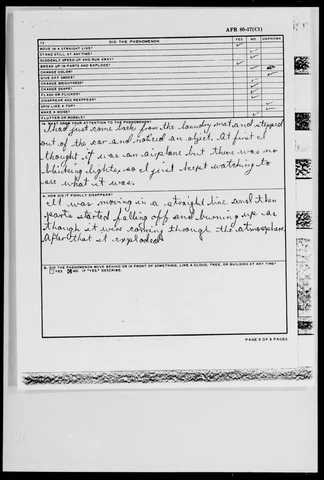 AFR 80-17(C1)
13. DID THE PHENOMENON YES NO UNKNOWN
MOVE IN A STRAIGHT LINE? ✓
STAND STILL AT ANYTIME? ✓
SUDDENLY SPEED UP AND RUN AWAY? ✓
BREAK UP IN PARTS AND EXPLODE? ✓
CHANGE COLOR?
GIVE OFF SMOKE? ✓
CHANGE BRIGHTNESS? ✓
CHANGE SHAPE? ✓
FLASH OR FLICKER? ✓
DISAPPEAR AND REAPPEAR? ✓
SPIN LIKE A TOP? ✓
MAKE A NOISE? ✓
FLUTTER OR WOBBLE? ✓
14. WHAT DREW YOUR ATTENTION TO THE PHENOMENON?
I had just come back from the laundry mat and stepped
out of the car and noticed an object. At first I
thought it was an airplane but there was no
blinking lights, so I just kept watching to
see what it was.
A. HOW DID IT FINALLY DISAPPEAR?
It was moving in a straight line and then
parts started falling off and burning up as
though it were coming through the atmosphere.
After that it exploded
B. DID THE PHENOMENON MOVE BEHIND OR IN FRONT OF SOMETHING, LIKE A CLOUD, TREE, OR BUILDING AT ANY TIME?
YES NO IF "YES," DESCRIBE.
PAGE 5 OF 9 PAGES